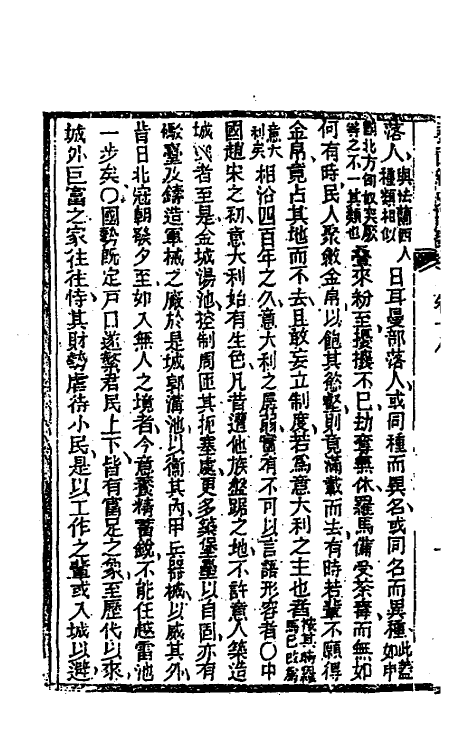 落人與法蘭西人種類相似日耳曼部落人或同種而異名或同名而異種此蓋如中
國北方匈奴突厥等之不一其類也蠭來粉至擾攘不已劫奪無休羅馬備受荼毒而無如
何有時民人聚斂金帛以飽其慾壑則竟滿載而去有時若輩不願得
金帛竟占其地而不去且敢妄立制度若爲意大利之主也者按其時羅馬已改爲
意大利矣相沿四百年之久意大利之孱弱實有不可以言語形容者〇中
國趙宋之初意大利始有生色凡昔遭他族盤踞之地不許意人築造
城者至是金城湯池控制周匝其扼塞處更多築堡壘以自固亦有
礮臺及鑄造軍械之廠於是城郭溝池以衞其內甲兵器械以威其外
昔日北寇朝發夕至如入無人之境者今意養精蓄銳不能任越雷池
一步矣〇國勢旣定戸口遂繁君民上下皆有富足之象至歷代以來
城外巨富之家往往恃其財勢虐待小民是以工作之輩或入城以避